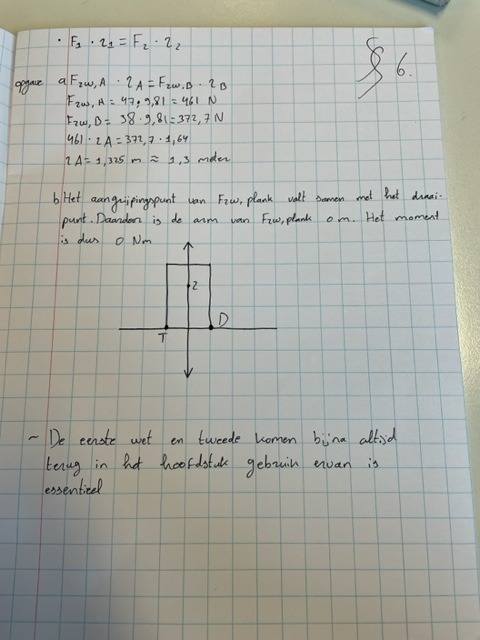 • F1 · r1 = F2 · r2
§ 6.
opgave a Fzw,A · rA = Fzw,B · rB
Fzw,A = 47 · 9,81 = 461 N
Fzw,B = 38 · 9,81 = 372,7 N
461 · rA = 372,7 · 1,64
rA = 1,325 m ≈ 1,3 meter
b Het aangrijpingspunt van Fzw,plank valt samen met het draai-
punt. Daardoor is de arm van Fzw,plank 0 m. Het moment
is dus 0 Nm
z
T D
~ De eerste wet en tweede komen bijna altijd
terug in het hoofdstuk gebruik ervan is
essentieel